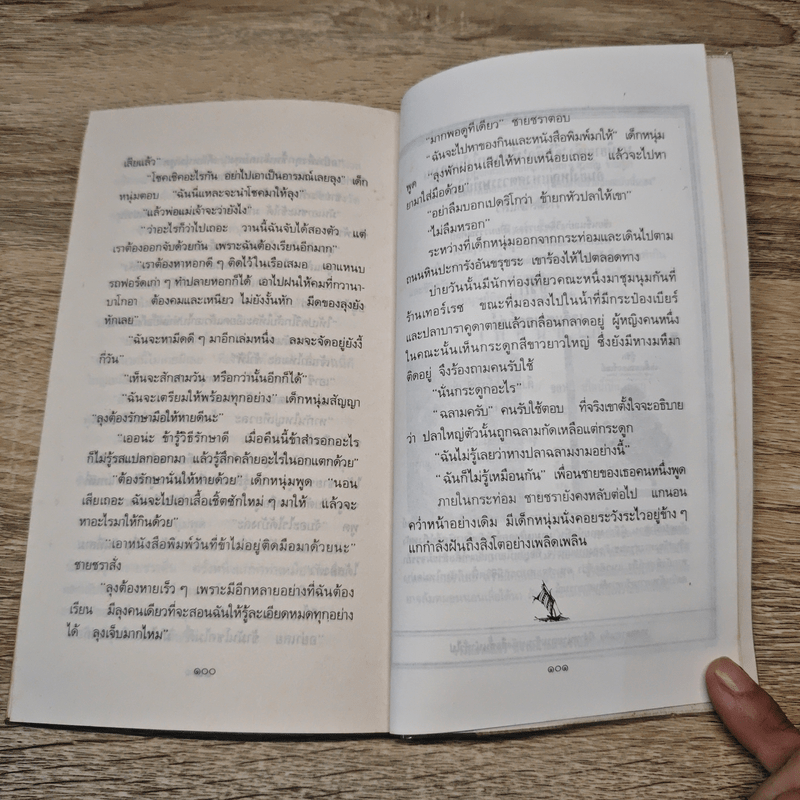 เสียแล้ว"
"โชคเชิคอะไรกัน อย่าไปเอาเป็นอารมณ์เลยลุง" เด็ก
หนุ่มตอบ "ฉันนี่แหละจะนำโชคมาให้ลุง"
"แล้วพ่อแม่เจ้าจะว่ายังไง"
"ว่าอะไรก็ว่าไปเถอะ วานนี้ฉันจับได้สองตัว แต่
เราต้องออกจับด้วยกัน เพราะฉันต้องเรียนอีกมาก"
"เราต้องหาหอกดี ๆ ติดไว้ในเรือเสมอ เอาแหนบ
รถฟอร์ดเก่า ๆ ทำปลายหอกก็ได้ เอาไปฝนให้คมที่กวานา-
บาโกอา ต้องคมและเหนียว ไม่ยังงั้นหัก มีดของลุงยัง
หักเลย"
"ฉันจะหามีดดี ๆ มาอีกเล่มหนึ่ง ลมจะจัดอยู่ยังงี้
กี่วัน"
"เห็นจะสักสามวัน หรือกว่านั้นอีกก็ได้"
"ฉันจะเตรียมให้พร้อมทุกอย่าง" เด็กหนุ่มสัญญา
"ลุงต้องรักษามือให้หายดีนะ"
"เออน่ะ ข้ารู้วิธีรักษาดี เมื่อคืนนี้ข้าสำรอกอะไร
ก็ไม่รู้รสแปลกออกมา แล้วรู้สึกคล้ายอะไรในอกแตกด้วย"
"ต้องรักษานั่นให้หายด้วย" เด็กหนุ่มพูด "นอน
เสียเถอะ ฉันจะไปเอาเสื้อเชิ้ตซักใหม่ ๆ มาให้ แล้วจะ
หาอะไรมาให้กินด้วย"
"เอาหนังสือพิมพ์วันที่ข้าไม่อยู่ติดมือมาด้วยนะ"
ชายชราสั่ง
"ลุงต้องหายเร็ว ๆ เพราะมีอีกหลายอย่างที่ฉันต้อง
เรียน มีลุงคนเดียวที่จะสอนฉันให้รู้ละเอียดหมดทุกอย่าง
ได้ ลุงเจ็บมากไหม"
๑๐๐
"มากพอดูทีเดียว" ชายชราตอบ
"ฉันจะไปหาของกินและหนังสือพิมพ์มาให้" เด็กหนุ่ม
พูด "ลุงพักผ่อนเสียให้หายเหนื่อยเถอะ แล้วจะไปหา
ยามาใส่มือด้วย"
"อย่าลืมบอกเปดริโกว่า ข้ายกหัวปลาให้เขา"
"ไม่ลืมหรอก"
ระหว่างที่เด็กหนุ่มออกจากกระท่อมและเดินไปตาม
ถนนหินปะการังอันขรุขระ เขาร้องไห้ไปตลอดทาง
บ่ายวันนั้นมีนักท่องเที่ยวคณะหนึ่งมาชุมนุมกันที่
ร้านเทอร์เรซ ขณะที่มองลงไปในน้ำที่มีกระป๋องเบียร์
และปลาบาราคูดาตายแล้วเกลื่อนกลาดอยู่ ผู้หญิงคนหนึ่ง
ในคณะนั้นเห็นกระดูกสีขาวยาวใหญ่ ซึ่งยังมีหางมหึมา
ติดอยู่ จึงร้องถามคนรับใช้
"นั่นกระดูกอะไร"
"ฉลามครับ" คนรับใช้ตอบ ที่จริงเขาตั้งใจจะอธิบาย
ว่า ปลาใหญ่ตัวนั้นถูกฉลามกัดเหลือแต่กระดูก
"ฉันไม่รู้เลยว่าหางปลาฉลามงามอย่างนี้"
"ฉันก็ไม่รู้เหมือนกัน" เพื่อนชายของเธอคนหนึ่งพูด
ภายในกระท่อม ชายชรายังคงหลับต่อไป แกนอน
คว่ำหน้าอย่างเดิม มีเด็กหนุ่มนั่งคอยระวังระไวอยู่ข้าง ๆ
แกกำลังฝันถึงสิงโตอย่างเพลิดเพลิน
๑๐๑